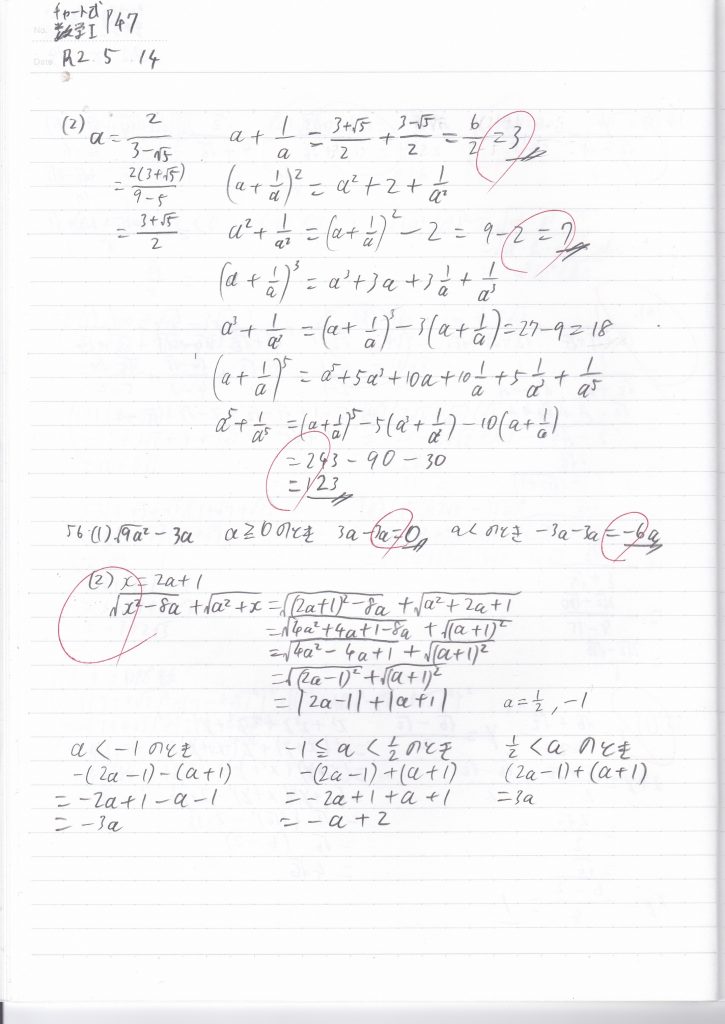 チャート式
数学I P47
No.
Date R2 5 14
(2) a = 2/(3-√5)   a + 1/a = (3+√5)/2 + (3-√5)/2 = 6/2 = 3
= 2(3+√5)/(9-5)   (a + 1/a)² = a² + 2 + 1/a²
= (3+√5)/2   a² + 1/a² = (a + 1/a)² - 2 = 9 - 2 = 7
(a + 1/a)³ = a³ + 3a + 3 1/a + 1/a³
a³ + 1/a³ = (a + 1/a)³ - 3(a + 1/a) = 27 - 9 = 18
(a + 1/a)⁵ = a⁵ + 5a³ + 10a + 10 1/a + 5 1/a³ + 1/a⁵
a⁵ + 1/a⁵ = (a + 1/a)⁵ - 5(a³ + 1/a³) - 10(a + 1/a)
= 243 - 90 - 30
= 123
56 (1) √9a² - 3a   a ≧ 0 のとき   3a - 3a = 0   a < のとき   -3a - 3a = -6a
(2) x = 2a + 1
√x² - 8a + √a² + x = √(2a+1)² - 8a + √a² + 2a + 1
= √4a² + 4a + 1 - 8a + √(a+1)²
= √4a² - 4a + 1 + √(a+1)²
= √(2a-1)² + √(a+1)²
= |2a-1| + |a+1|   a = 1/2, -1
a < -1 のとき   -1 ≦ a < 1/2 のとき   1/2 < a のとき
-(2a-1) - (a+1)   -(2a-1) + (a+1)   (2a-1) + (a+1)
= -2a + 1 - a - 1   = -2a + 1 + a + 1   = 3a
= -3a   = -a + 2